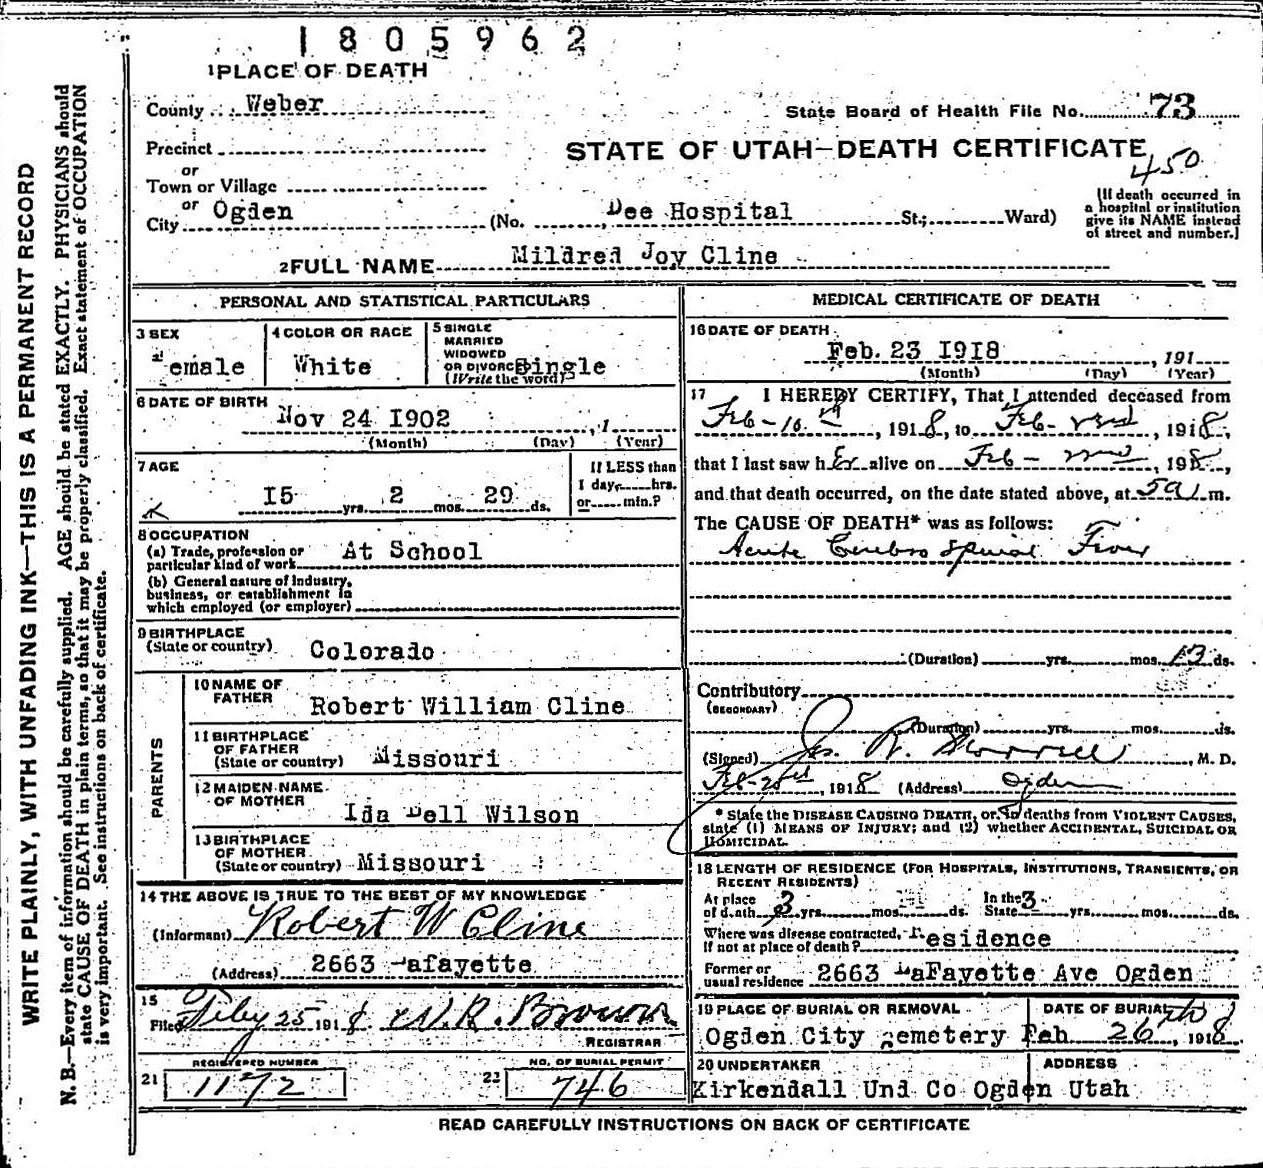 1805962
1PLACE OF DEATH
County Weber
State Board of Health File No. 73
Precinct
STATE OF UTAH—DEATH CERTIFICATE
450
or
Town or Village
or
City Ogden (No. Dee Hospital St.; Ward)
[If death occurred in
a hospital or institution
give its NAME instead
of street and number.]
2FULL NAME Mildred Joy Cline
PERSONAL AND STATISTICAL PARTICULARS
3 SEX
emale
4 COLOR OR RACE
White
5 SINGLE
MARRIED
WIDOWED
OR DIVORC Single
(Write the word)
6 DATE OF BIRTH
Nov 24 I902 , 1
(Month) (Day) (Year)
7 AGE
I5 yrs. 2 mos. 29 ds.
If LESS than
1 day, hrs.
or min.?
8 OCCUPATION
(a) Trade, profession or
particular kind of work At School
(b) General nature of industry,
business, or establishment in
which employed (or employer)
9 BIRTHPLACE
(State or country) Colorado
PARENTS
10 NAME OF
FATHER Robert William Cline
11 BIRTHPLACE
OF FATHER
(State or country) Missouri
12 MAIDEN NAME
OF MOTHER Ida Dell Wilson
13 BIRTHPLACE
OF MOTHER
(State or country) Missouri
14 THE ABOVE IS TRUE TO THE BEST OF MY KNOWLEDGE
(Informant) Robert W Cline
(Address) 2663 Lafayette
15
Filed Feby 25 1918 W. R. Brown
REGISTRAR
REGISTERED NUMBER
21 1172
NO. OF BURIAL PERMIT
22 746
MEDICAL CERTIFICATE OF DEATH
16 DATE OF DEATH
Feb. 23 I9I8 , 191
(Month) (Day) (Year)
17 I HEREBY CERTIFY, That I attended deceased from
Feb-10th, 1918, to Feb- , 1918,
that I last saw her alive on Feb- , 198,
and that death occurred, on the date stated above, at 5 a m.
The CAUSE OF DEATH* was as follows:
Acute Cerebro Spinal Fever
(Duration) yrs. mos. 13 ds.
Contributory
(SECONDARY)
(Duration) yrs. mos. ds.
(Signed) Jos. R. Morrell, M. D.
Feb-25th, 1918 (Address) Ogden
* State the DISEASE CAUSING DEATH, or, in deaths from VIOLENT CAUSES,
state (1) MEANS OF INJURY; and (2) whether ACCIDENTAL, SUICIDAL OR
HOMICIDAL.
18 LENGTH OF RESIDENCE (FOR HOSPITALS, INSTITUTIONS, TRANSIENTS, OR
RECENT RESIDENTS)
At place
of death 3 yrs. mos. ds.
In the
State 3 yrs. mos. ds.
Where was disease contracted,
If not at place of death? residence
Former or
usual residence 2663 LaFayette Ave Ogden
19 PLACE OF BURIAL OR REMOVAL
Ogden City Cemetery
DATE OF BURIAL
Feb. 26th, 1918
20 UNDERTAKER
Kirkendall Und Co
ADDRESS
Ogden Utah
READ CAREFULLY INSTRUCTIONS ON BACK OF CERTIFICATE
WRITE PLAINLY, WITH UNFADING INK—THIS IS A PERMANENT RECORD
N. B.—Every item of information should be carefully supplied. AGE should be stated EXACTLY. PHYSICIANS should
state CAUSE OF DEATH in plain terms, so that it may be properly classified. Exact statement of OCCUPATION
is very important. See instructions on back of certificate.